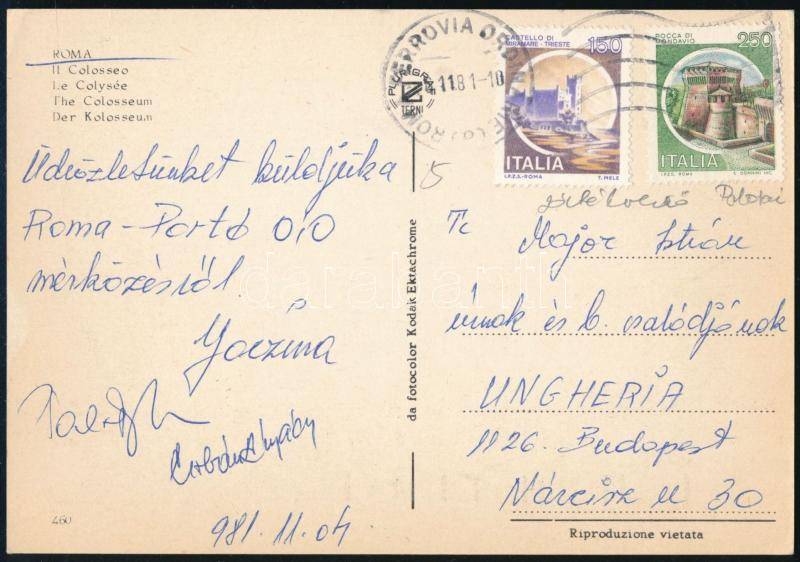 ROMA
Il Colosseo
Le Colysée
The Colosseum
Der Kolosseum
Üdvözletünket küldjük a
Roma - Porto 0:0
mérkőzésről.
981. 11. 04.
460
da fotocolor Kodak Ektachrome
FERROVIA
PLURIGRAF
TERNI
ROMA
11 81-10
CASTELLO DI
MIRAMARE - TRIESTE
150
ITALIA
I.P.Z.S. - ROMA
T. MELE
ROCCA DI
MONDAVIO
250
ITALIA
I.P.Z.S. ROMA
E. DONNINI INC.
T.
Major István
úrnak és b. családjának
UNGHERIA
1126. Budapest
Nárcisz u 30
Riproduzione vietata
darabanth